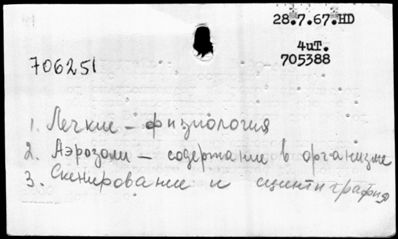 28.7.67.HD
4иT.
705388
706251
1. Легкие – физиология
2. Аэрозоли – содержание в организме
3. Скенирование и сцинтиграфия